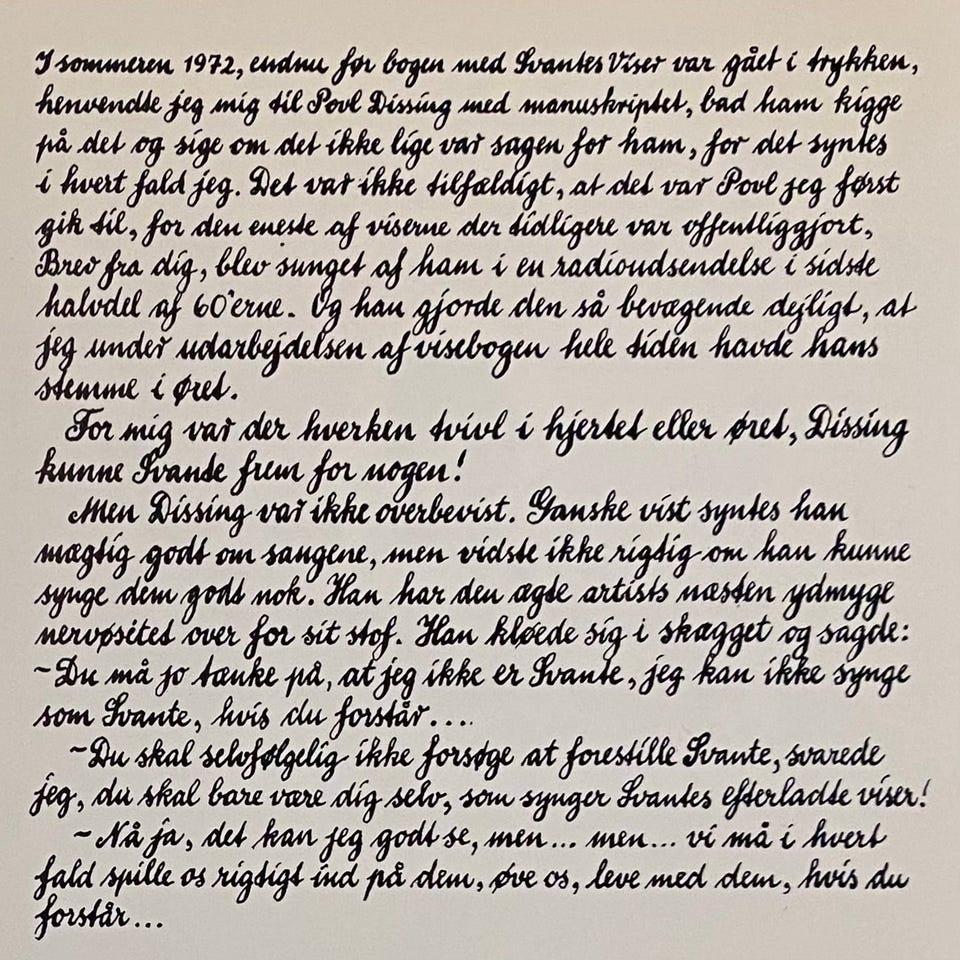 I sommeren 1972, endnu før bogen med Svantes Viser var gået i trykken,
henvendte jeg mig til Povl Dissing med manuskriptet, bad ham kigge
på det og sige om det ikke lige var sagen for ham, for det syntes
i hvert fald jeg. Det var ikke tilfældigt, at det var Povl jeg først
gik til, for den eneste af viserne der tidligere var offentliggjort,
Brev fra dig, blev sunget af ham i en radioudsendelse i sidste
halvdel af 60'erne. Og han gjorde den så bevægende dejligt, at
jeg under udarbejdelsen af visebogen hele tiden havde hans
stemme i øret.
For mig var der hverken tvivl i hjertet eller øret, Dissing
kunne Svante frem for nogen!
Men Dissing var ikke overbevist. Ganske vist syntes han
mægtig godt om sangene, men vidste ikke rigtig om han kunne
synge dem godt nok. Han har den ægte artists næsten ydmyge
nervøsitet over for sit stof. Han kløede sig i skægget og sagde:
~Du må jo tænke på, at jeg ikke er Svante, jeg kan ikke synge
som Svante, hvis du forstår....
~Du skal selvfølgelig ikke forsøge at forestille Svante, svarede
jeg, du skal bare være dig selv, som synger Svantes efterladte viser!
~Nå ja, det kan jeg godt se, men... men... vi må i hvert
fald spille os rigtigt ind på dem, øve os, leve med dem, hvis du
forstår...